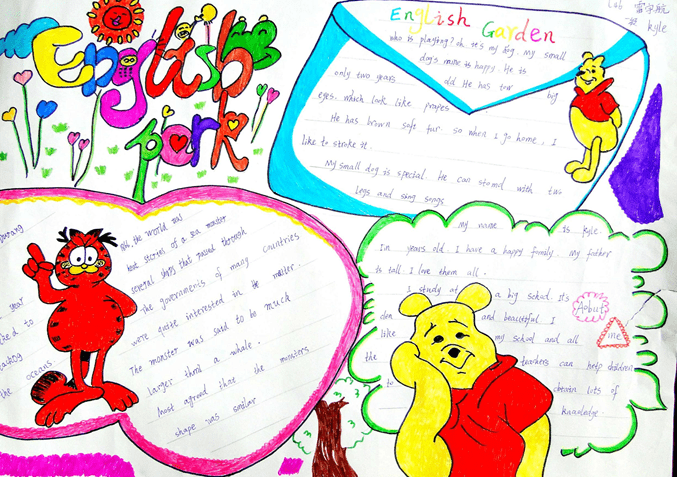 English
park
English Garden
班 kyle
who is playing? oh it's my dog. My small
dog's name is happy. He is
only two years old He has tow big
eyes. which look like
He has brown soft fur. so when I go home, I
like to stroke it.
My small dog is special. He can stand with two
legs and sing songs
the world was
stories of a sea monster
several ships that passed through
The governments of many countries
were quite interested in the matter.
The monster was said to be much
larger than a whale.
Most agreed that the monsters
shape was similar
year
to
the oceans.
my name is kyle.
In years old. I have a happy family. My father
is tall. I love them all.
I study at a big school. It's
den and beautiful. I
like my school and all
the teachers can help children
to obtain lots of
knowledge.
Aobut
me